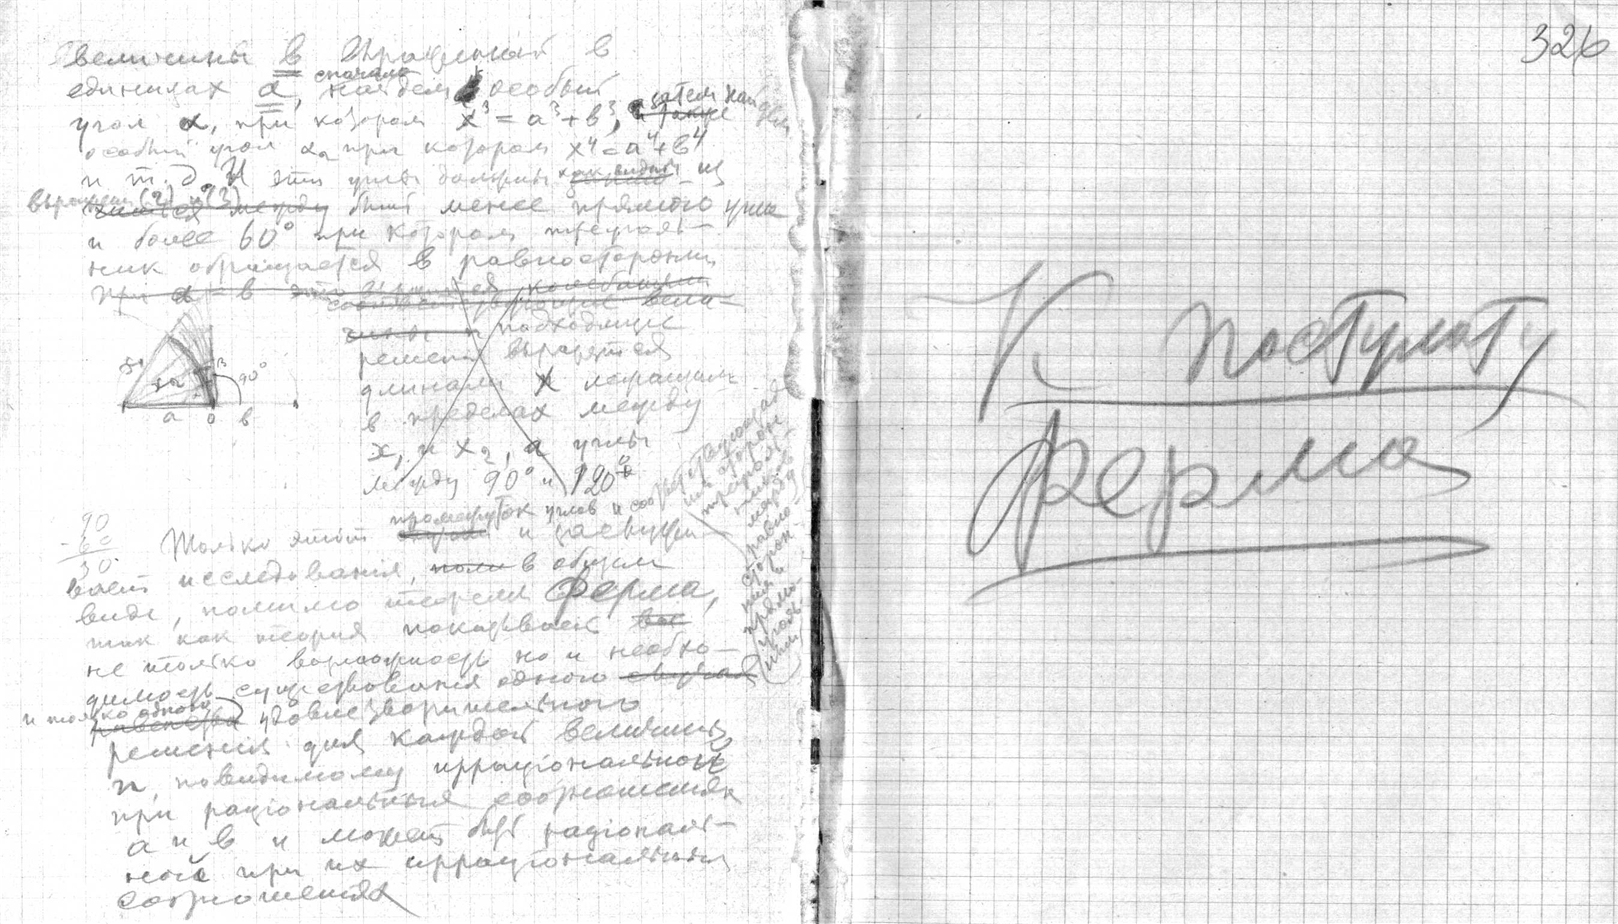 величины в выраженной в
единицах a, сначала найдем особый
угол α, при котором x³ = a³ + в³, затем найдем
особый угол α₂ при котором x⁴ = a⁴ + в⁴
и т. д. И эти углы должны как видно из
выражен (2) и (3) быть менее прямого угла
и более 60° при котором треуголь-
ник обращается в равносторонний
при a = в
подходящие
решения выразятся
длинами x лежащими
в пределах между
x, и x₂, а углы
между 90° и 120°
a o в
90°
90
- 60
30
Только этот промежуток углов и соответствующая
и заслужи-
вает исследования, в общем
виде, помимо теоремы Ферма,
так как теория показывает
не только возможность но и необхо-
димость существования одного
и только одного удовлетворительного
решения для каждой величины
n, повидимому иррациональной
при раціональных соотношениях
a и в и может быть раціональ-
ной при их иррациональных
соотношениях
сторон
между
равно
сторон
прямо
уголь
326
К постулату
Ферма